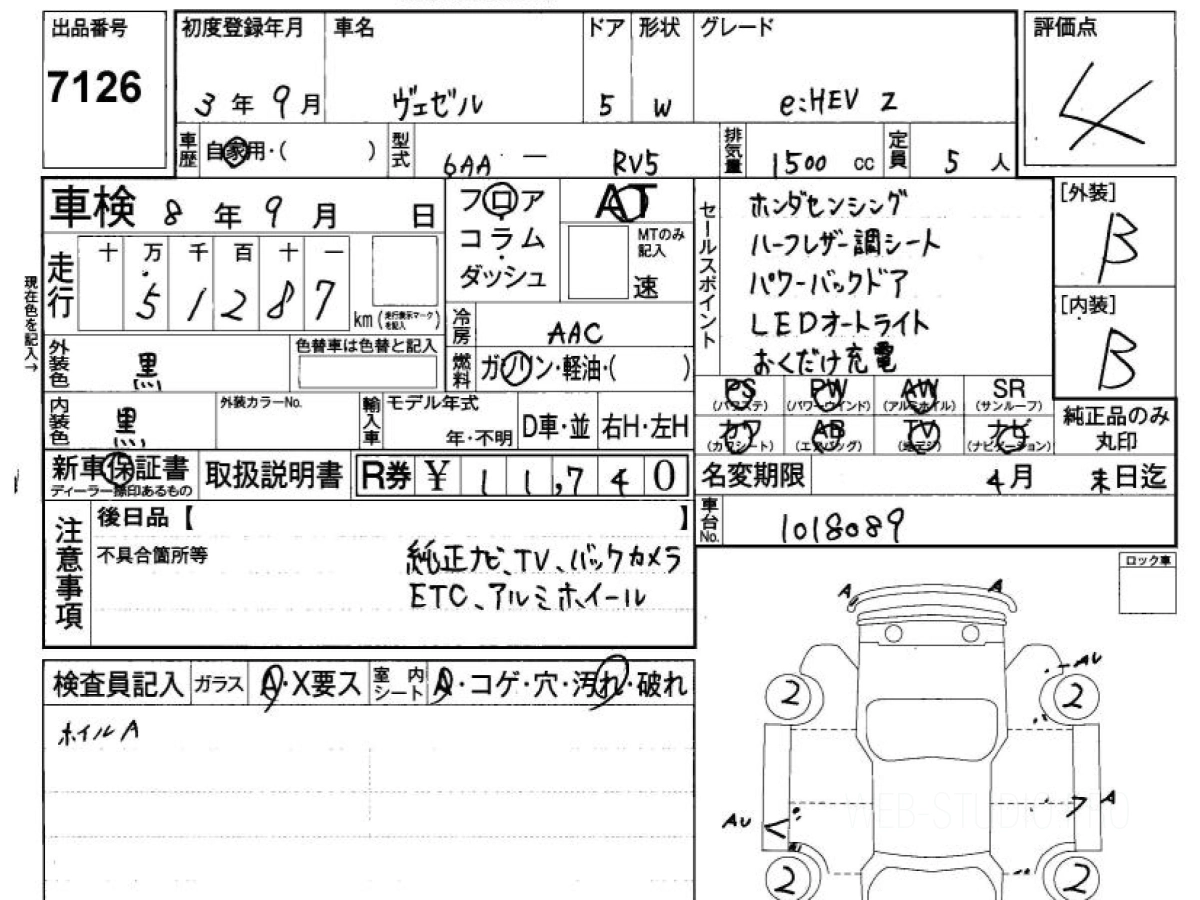 出品番号
7126
初度登録年月
3年9月
車名
ヴェゼル
ドア
5
形状
W
グレード
e:HEV Z
評価点
4
車歴 自家用・( )
型式 6AA - RV5
排気量 1500 cc
定員 5人
車検 8年9月 日
フロア
コラム
ダッシュ
AT
MTのみ
記入
速
セールスポイント
ホンダセンシング
ハーフレザー調シート
パワーバックドア
LEDオートライト
おくだけ充電
[外装]
B
[内装]
B
現在色を記入→
走行
十 万 千 百 十 一
5 1 2 8 7
km (走行表示マークを記入)
冷房 AAC
燃料 ガソリン・軽油・( )
外装色 黒
色替車は色替と記入
内装色 黒
外装カラーNo.
輸入車
モデル年式
年・不明
D車・並
右H・左H
PS
(パワステ)
PW
(パワーウインド)
AW
(アルミホイル)
SR
(サンルーフ)
カワ
(カワシート)
AB
(エアバッグ)
TV
(地デジ)
ナビ
(ナビゲーション)
純正品のみ
丸印
新車保証書
ディーラー捺印あるもの
取扱説明書
R券 ¥ 11,740
名変期限 4月 末日迄
車台No. 1018089
注意事項
後日品【 】
不具合箇所等
純正ナビ、TV、バックカメラ
ETC、アルミホイール
ロック車
検査員記入 ガラス A・X要ス 室内シート A・コゲ・穴・汚れ・破れ
ホイルA
A A
AU
2 2
A
AU
2 2
WEB-STUDIO.PRO